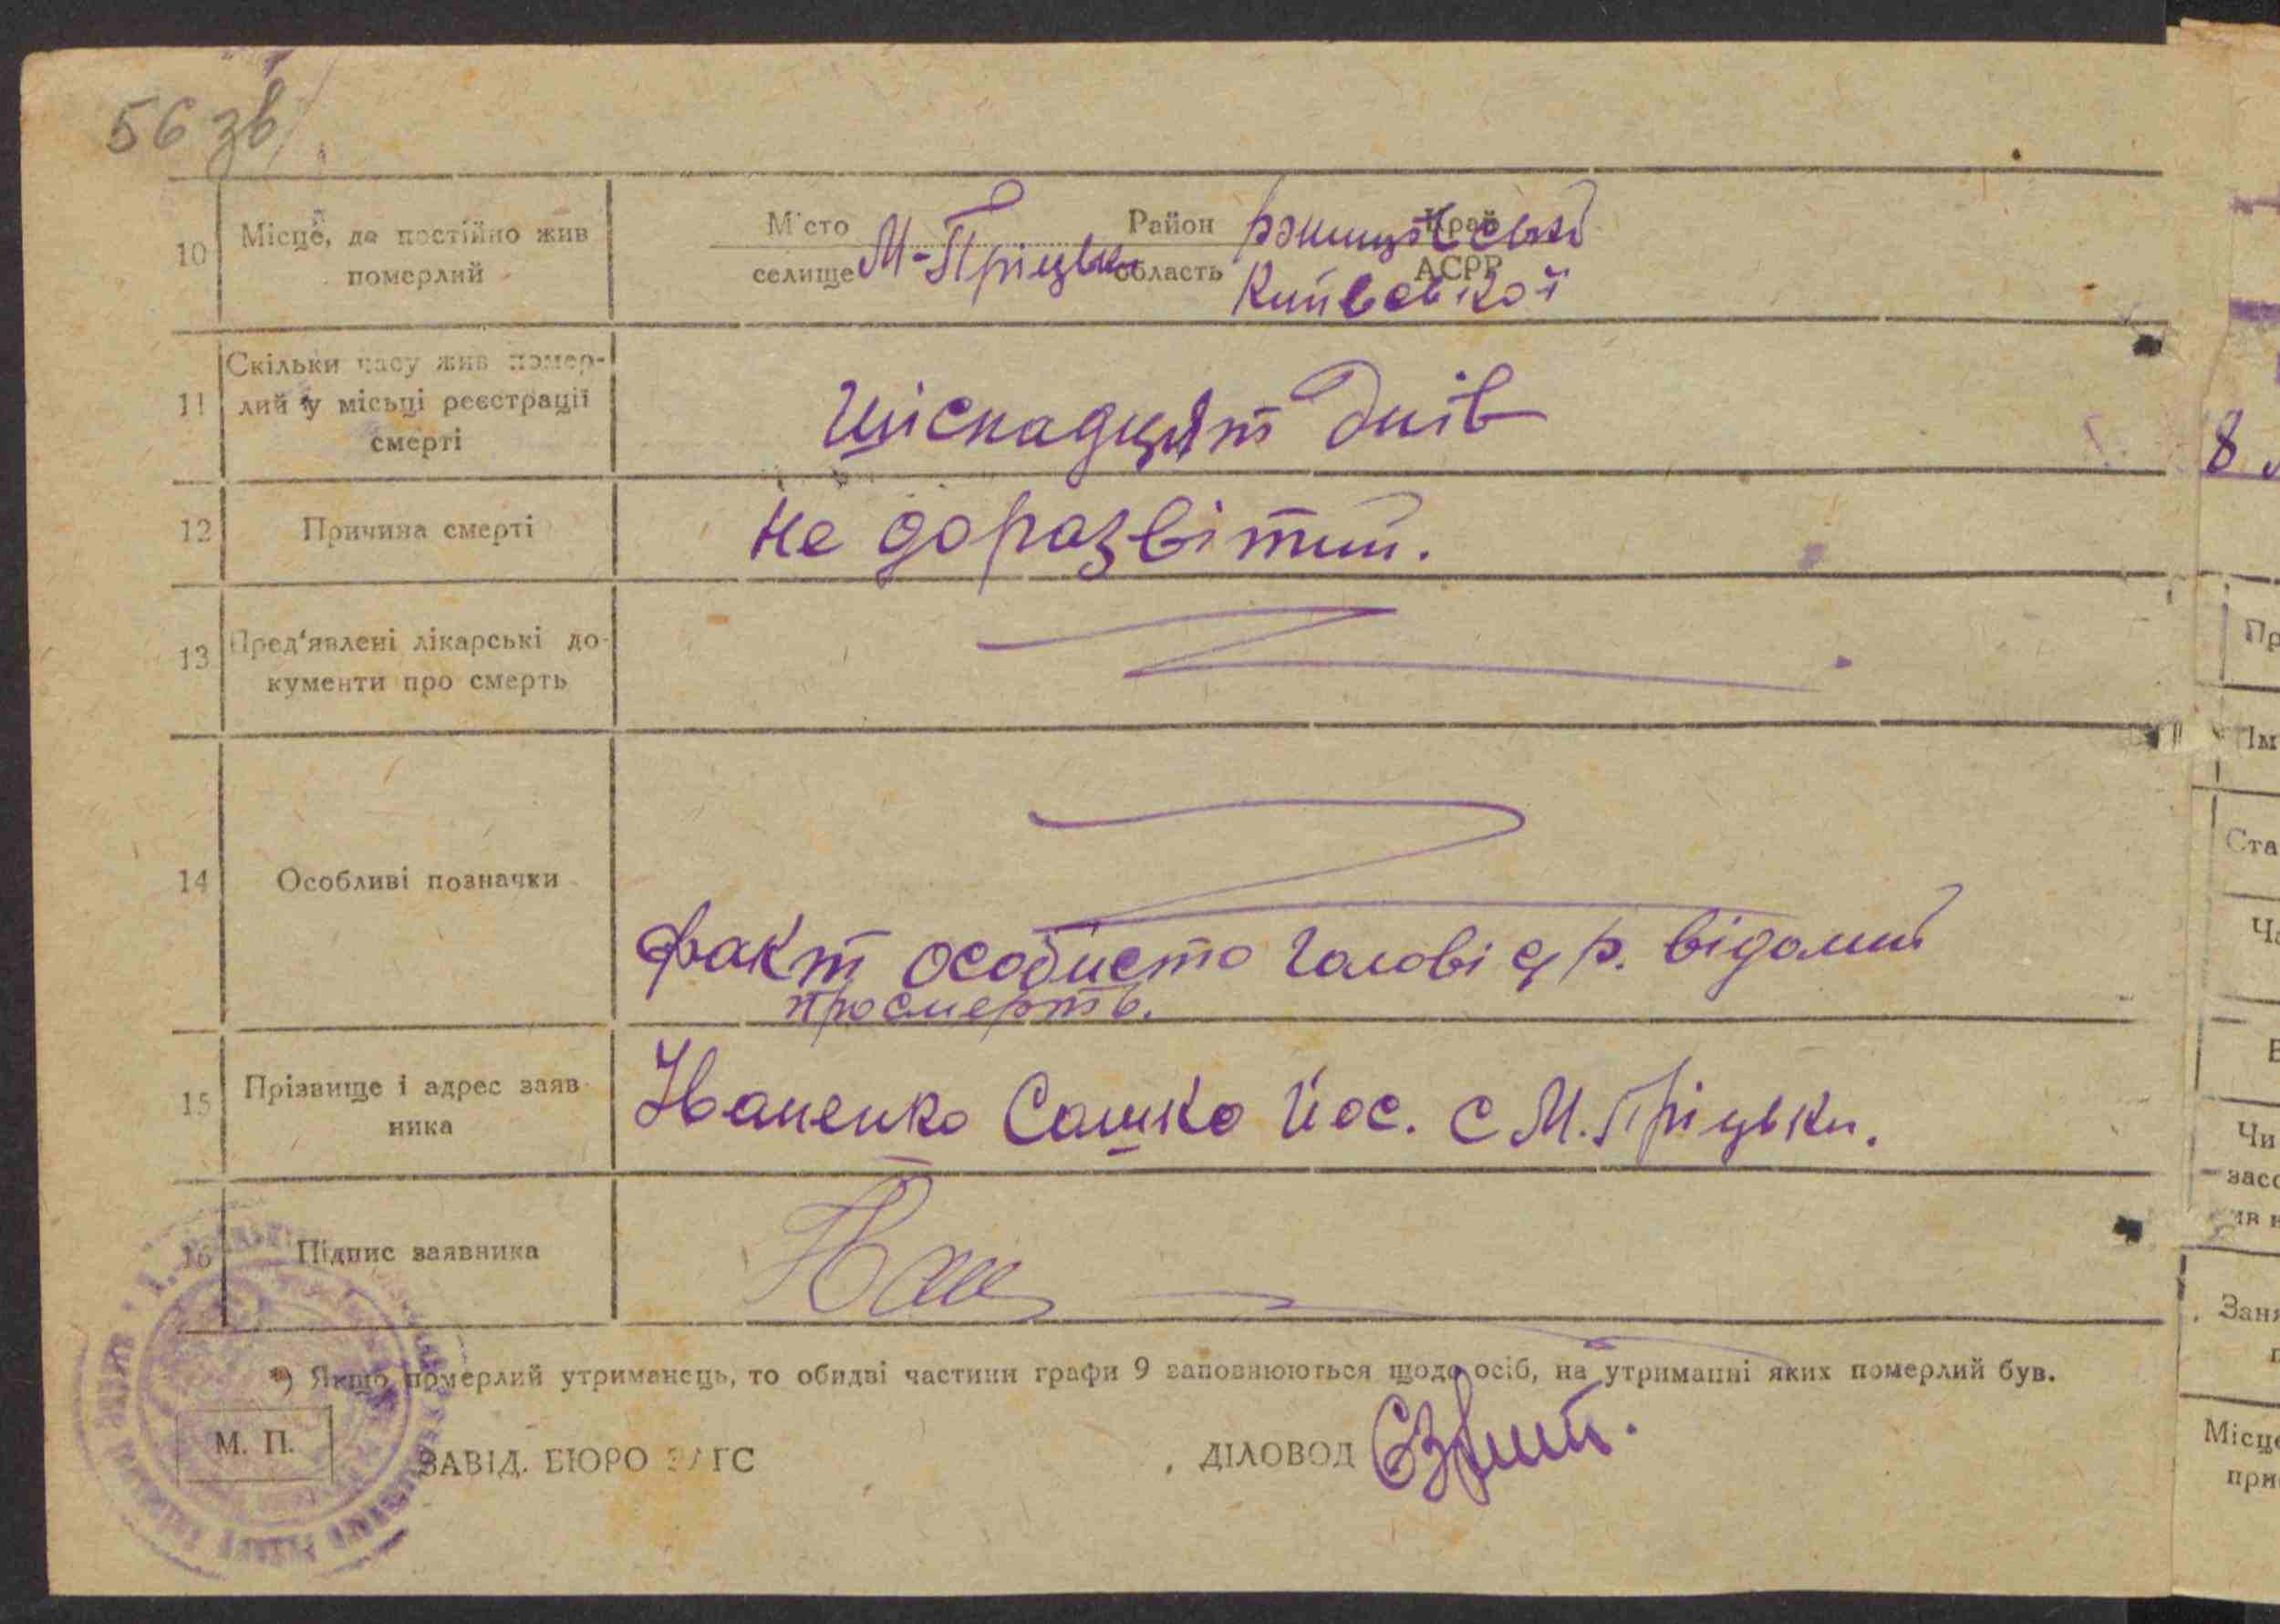 56 зв
10 Місце, де постійно жив померлий
Місто селище М-Пріцьки Район область Ржищівський Київської Край АСРР
11 Скільки часу жив помер-
лий у місьці реєстрації
смерті
шіснадцят днів
12 Причина смерті
не доразвітий.
13 Пред'явлені лікарські до-
кументи про смерть
14 Особливі позначки
факт особисто голові с/р. відомий
про смерть.
15 Прізвище і адрес заяв-
ника
Іваненко Сашко Йос. с М. Пріцьки.
16 Підпис заявника
*) Якщо померлий утриманець, то обидві частини графи 9 заповнюються щодо осіб, на утриманні яких померлий був.
М. П.
ЗАВІД. БЮРО ЗАГС
ДІЛОВОД
8
Пр
Ім
Ста
Ча
Чи
засо
Заня
Місце
при